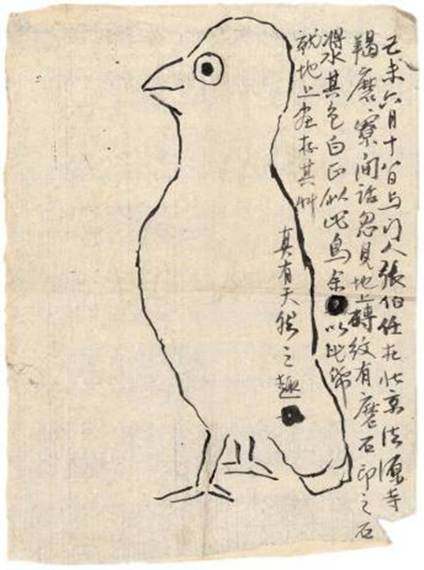 己未六月十八日与門人張伯任在北京法源寺
羯磨寮閒話忽見地上磚紋有磨石印之石
漿其色白正似此鳥余以此紙
就地上畫存其艸
真有天然之趣